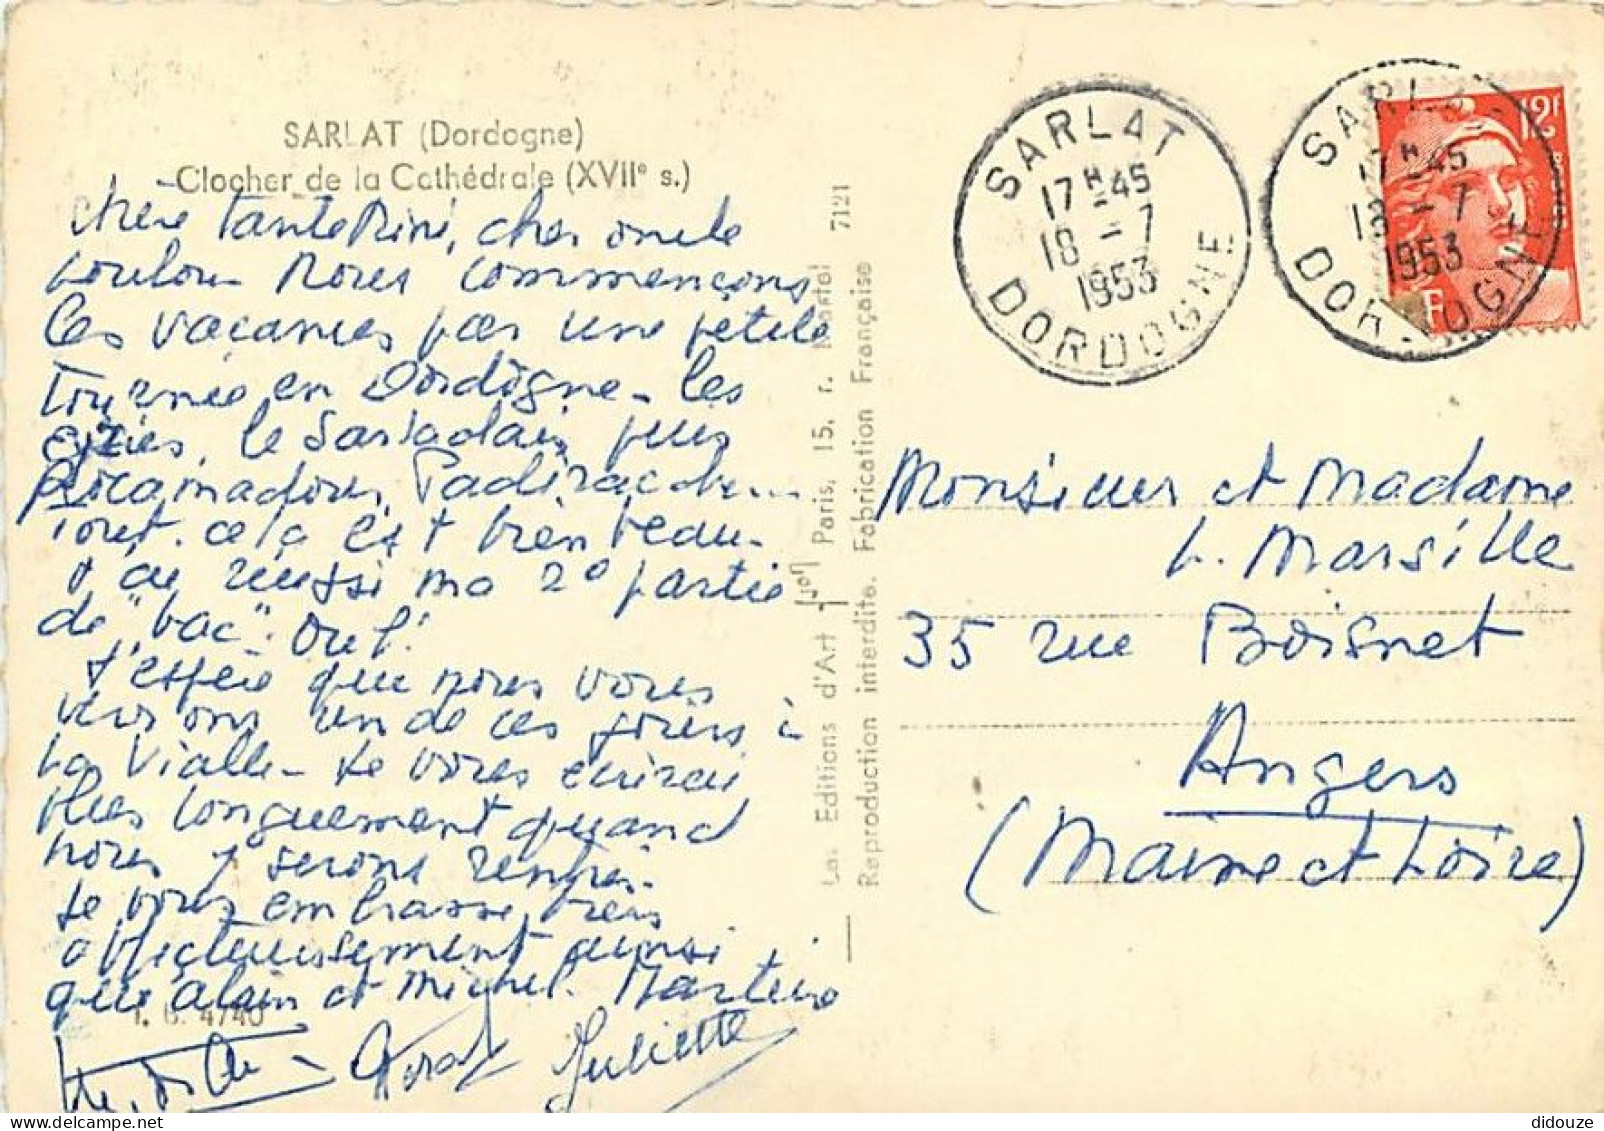 SARLAT (Dordogne)
Clocher de la Cathédrale (XVIIe s.)
Chère Tante Nini, cher oncle
Loulou. Nous commençons
les vacances par une petite
tournée en Dordogne - les
eyzies, le Sarladais, puis
Rocamadour, Padirac
tout cela est bien beau.
J'ai réussi ma 2e partie
de "bac". Ouf!
J'espère que nous vous
verrons un de ces jours à
La Vialle - Je vous écrirai
plus longuement quand
nous y serons rentrés.
Je vous embrasse bien
affectueusement ainsi
que Alain et Michel.
Juliette
I. B. 4740
7121
Les Editions d'Art Yvon Paris, 15, r. Martel
Reproduction interdite. Fabrication Française
SARLAT
17H45
18-7
1953
DORDOGNE
SARLAT
17H45
18-7
1953
DORDOGNE
12F
RF
Monsieur et Madame
L. Marsille
35 rue Boisnet
Angers
(Maine et Loire)
didouze